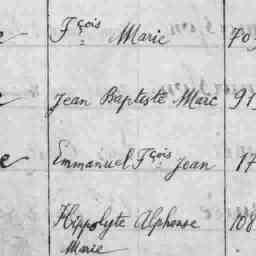 e Fçois Marie 70
e Jean Baptiste Marc 91
e Emmanuel Fçois Jean 17
Hippolyte Alphonse 108
Marie